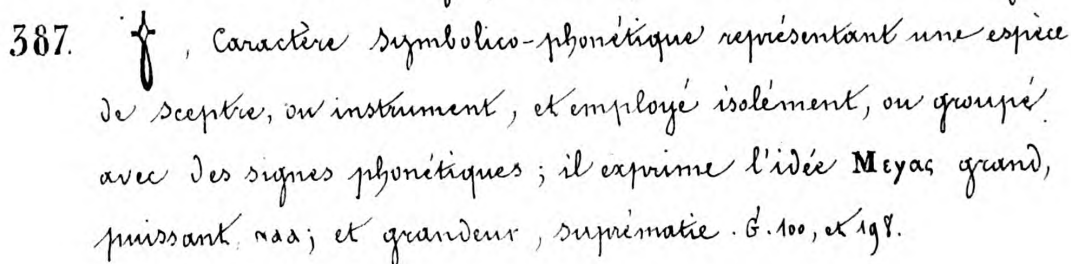 387. 𓌂, Caractère symbolico-phonétique représentant une espèce
de sceptre, ou instrument, et employé isolément, ou groupé
avec des signes phonétiques ; il exprime l'idée Μεγας grand,
puissant, ⲛⲁⲁ ; et grandeur, suprématie. G. 100, et 198.